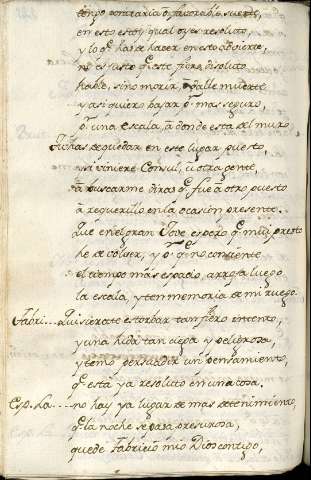 tengo contraria o favorable suerte,
en esto estoy qual oyes resoluto
y lo q̃ has de hacer en esto advierte,
no es justo q̃ este fiero disoluto
hable, sino morir, q̃ halle muerte
y asi quiero bajar p̃ mas seguro,
p̃ una escala, a donde esta el muro.
Tu has de quedar en este lugar puesto,
y si viniere Consul, u otra gente,
a buscarme diras q̃ fue a otro puesto
a requerillo en la ocasion presente.
Que en el gran Jove espero q̃ mui presto
he de volver, y p̃ q̃ no consiente
el tiempo mas espacio, arroja luego
la escala, y ten memoria de mi ruego.
Fabri... Quisierate estorbar tan fiero intento,
y una hida tan ciega y peligrosa,
y temo persuadir un pensamiento,
q̃ esta ya resoluto en una cosa.
Esp. La .... no hay ya lugar de mas detenimiento,
q̃ la noche se pasa presurosa,
quede Fabricio mio Dios contigo,